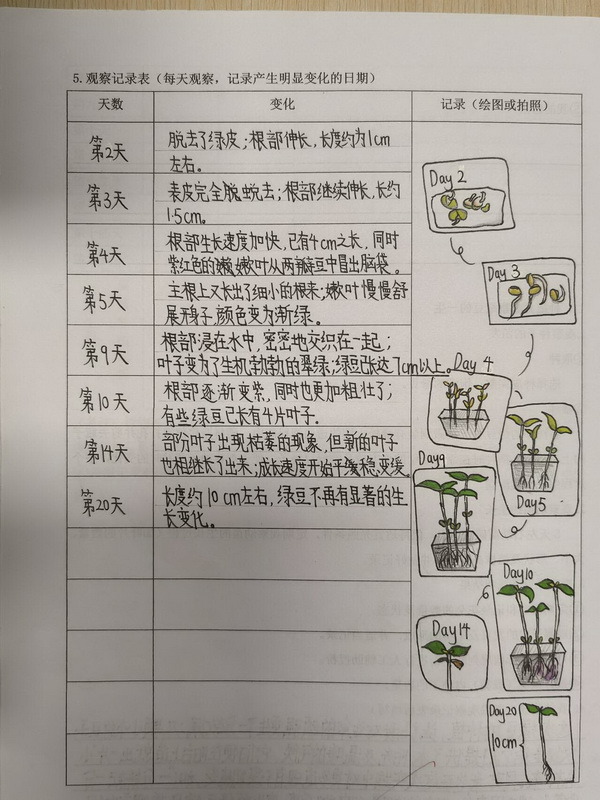 5.观察记录表（每天观察，记录产生明显变化的日期）
天数 变化 记录（绘图或拍照）
第2天
脱去了绿皮；根部伸长，长度约为1cm
左右。
第3天
表皮完全脱蜕去；根部继续伸长，长约
1.5cm。
第4天
根部生长速度加快，已有4cm之长，同时
紫红色的嫩嫩叶从两瓣豆中冒出脑袋。
第5天
主根上又长出了细小的根来；嫩叶慢慢舒
展身子，颜色变为渐绿。
第9天
根部浸在水中，密密地交织在一起；
叶子变为了生机勃勃的翠绿；绿豆已长达了7cm以上。
第10天
根部逐渐变紫，同时也更加粗壮了；
有些绿豆已长有4片叶子.
第14天
部分叶子出现枯萎的现象，但新的叶子
也相继长了出来；成长速度开始平缓稳，变缓.
第20天
长度约10cm左右，绿豆不再有显著的生
长变化。
Day 2
Day 3
Day 4
Day5
Day9
Day10
Day14
Day20
10cm